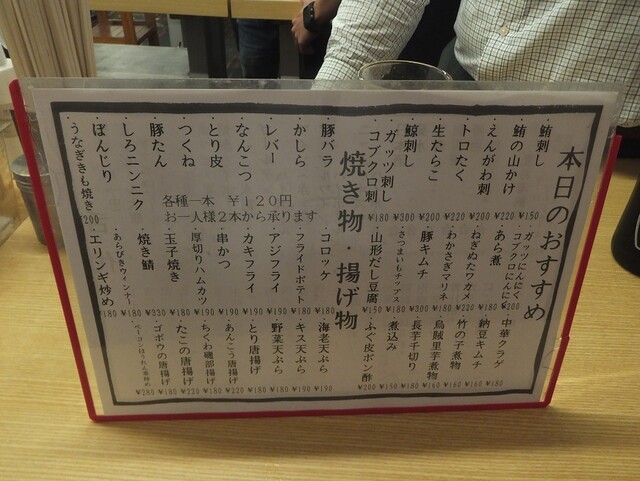 本日のおすすめ
・鮪刺し ¥150
・鮪の山かけ ¥220
・えんがわ刺 ¥200
・トロたく ¥220
・生たらこ ¥200
・鯨刺し ¥300
・ガッツ刺し
・コブクロ刺 ¥180
・ガツにんにく
・コブクロにんにく ¥200
・あら煮 ¥180
・ねぎぬたワカメ ¥220
・わかさぎマリネ ¥180
・豚キムチ ¥300
・さつまいもチップス ¥180
・山形だし豆腐 ¥150
・中華クラゲ ¥180
・納豆キムチ ¥160
・竹の子煮物 ¥160
・烏賊里芋煮物 ¥160
・長芋千切り ¥180
・煮込み ¥150
・ふぐ皮ポン酢 ¥200
焼き物・揚げ物
・豚バラ
・かしら
・レバー
・なんこつ
・とり皮
・つくね
・豚たん
・しろニンニク
・ぼんじり
各種一本 ¥120円
お一人様2本から承ります
・うなぎきも焼き ¥200
・コロッケ ¥180
・フライドポテト ¥180
・アジフライ ¥190
・カキフライ ¥190
・串かつ ¥190
・厚切りハムカツ ¥180
・玉子焼き ¥180
・焼き鯖 ¥330
・あらびきウィンナー ¥180
・エリンギ炒め ¥180
・海老天ぷら ¥190
・キス天ぷら ¥190
・野菜天ぷら ¥180
・とり唐揚げ ¥180
・あんこう唐揚げ ¥220
・ちくわ磯部揚げ ¥190
・たこの唐揚げ ¥220
・ゴボウの唐揚げ ¥180
・ベーコンほうれん草炒め ¥280